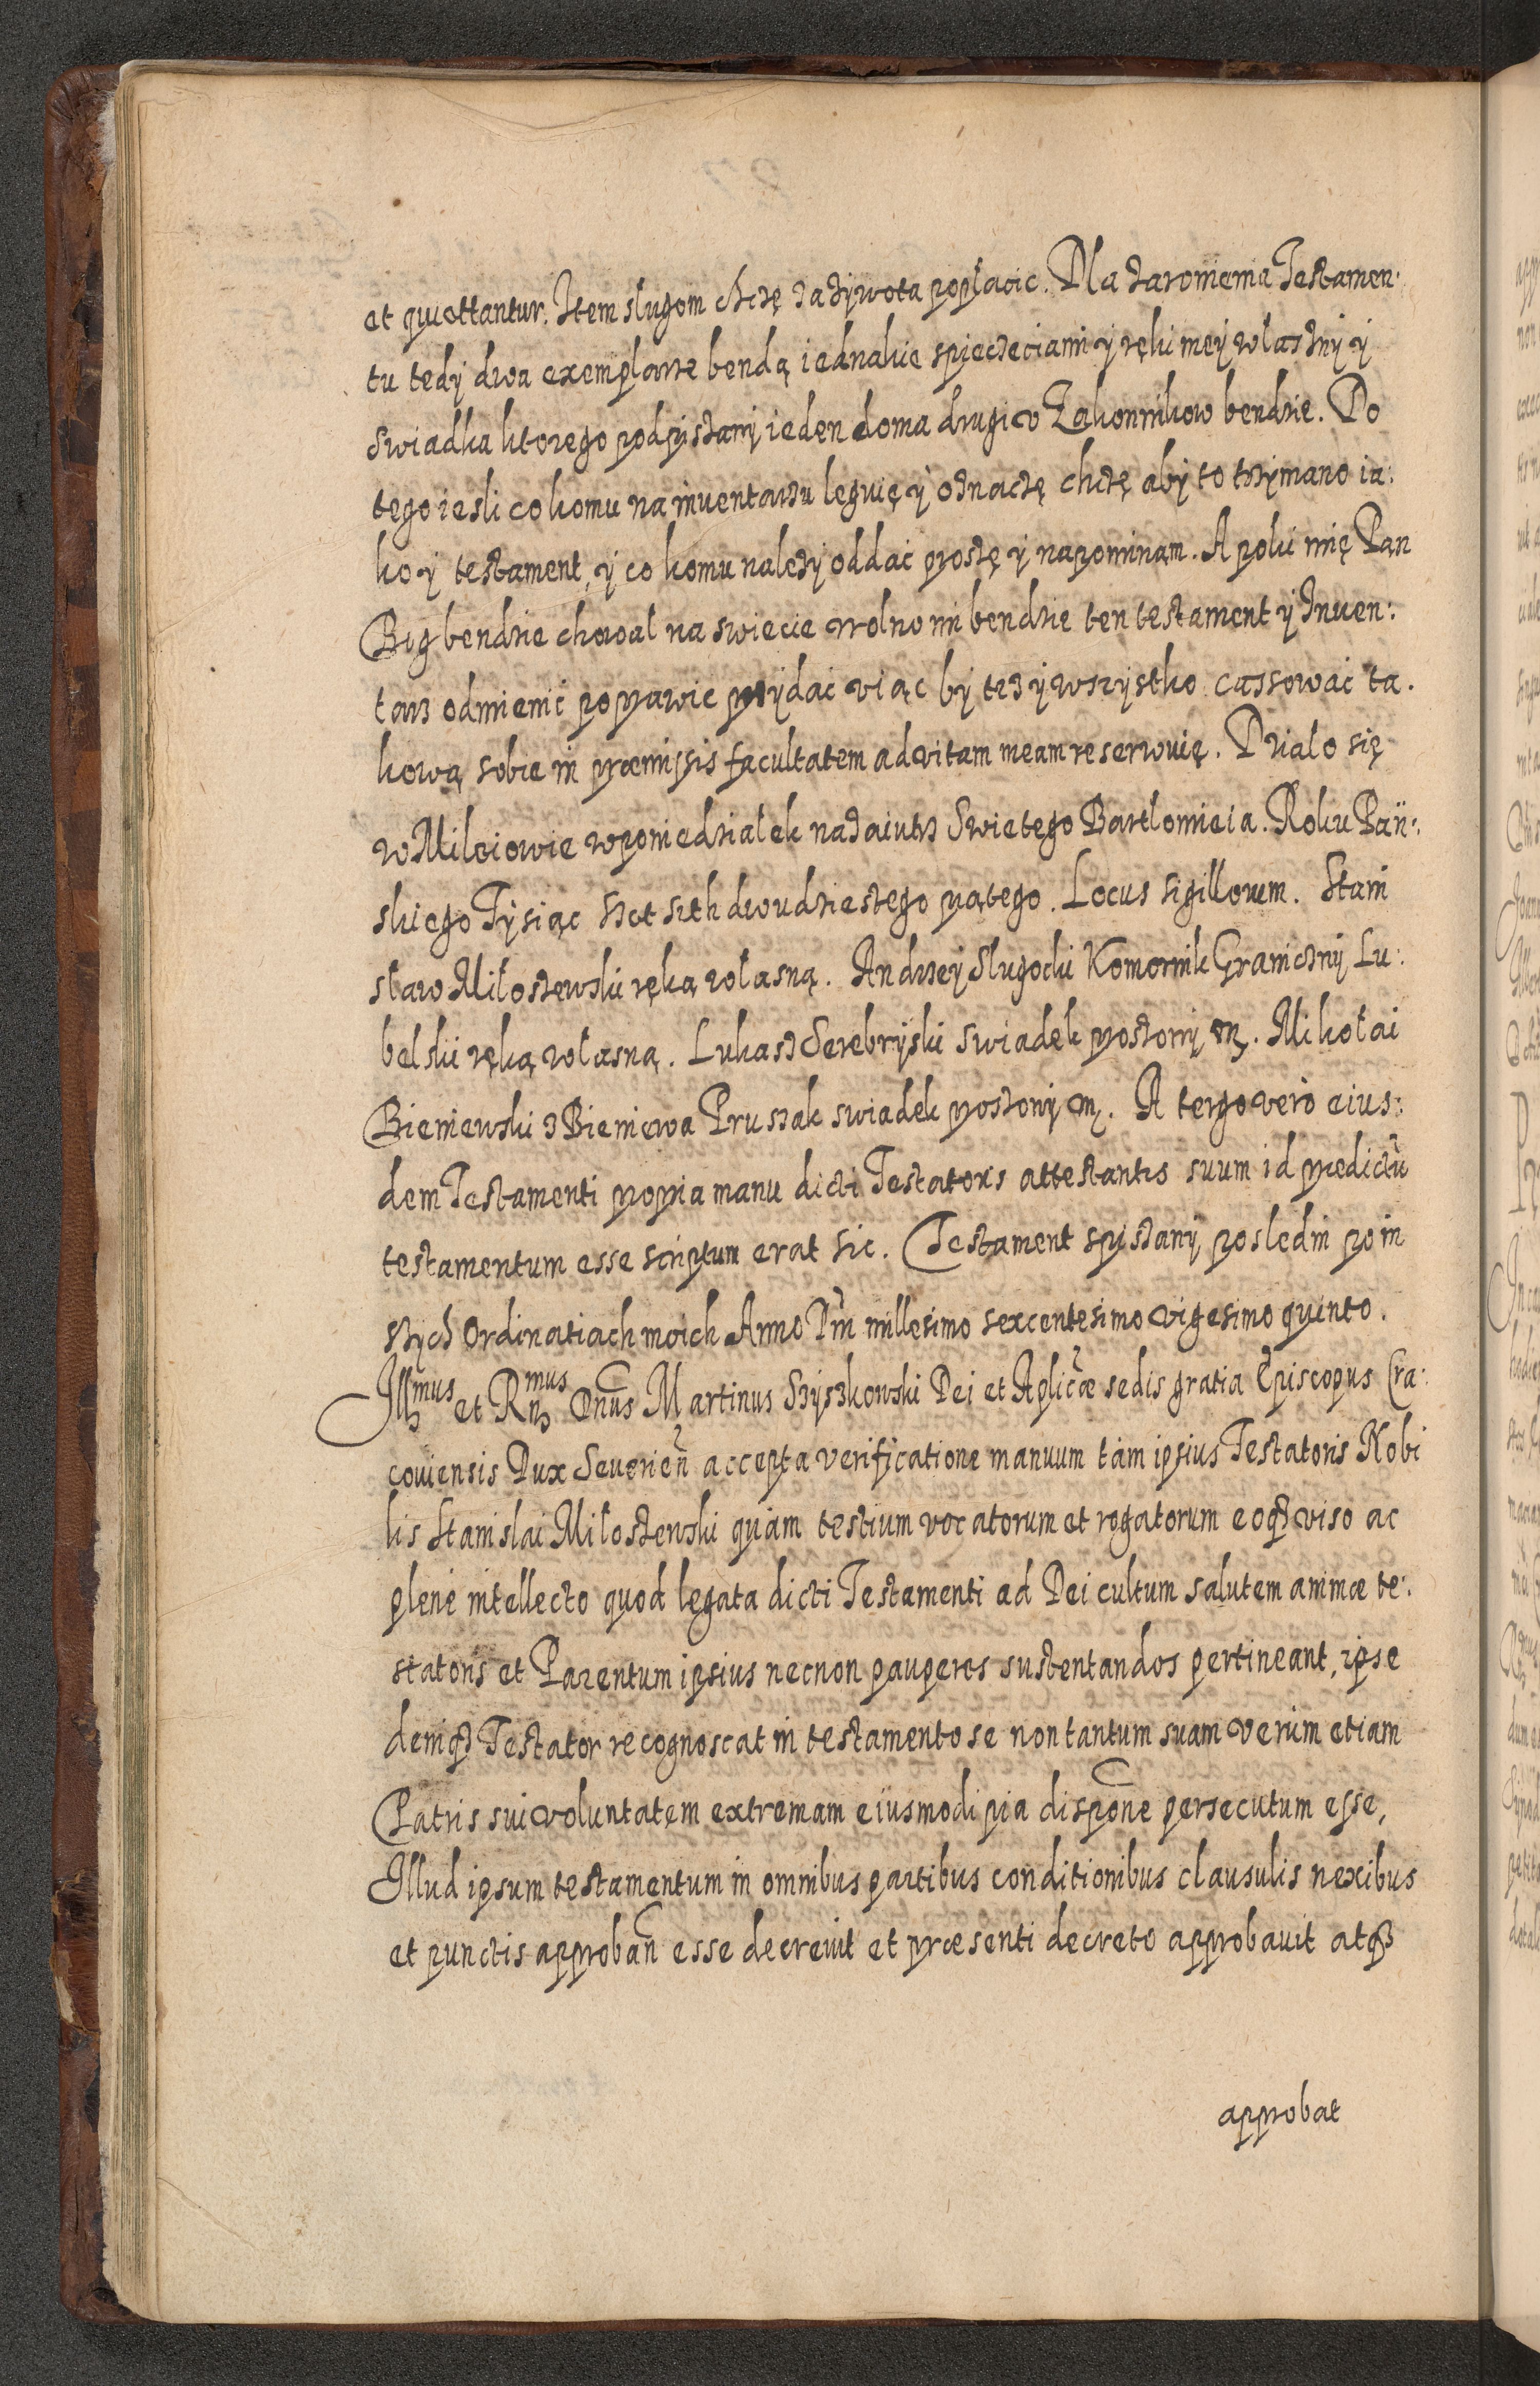 et quiettantur. Item slugom chczę zazywota popłacic. Dla zaromienia Testamen:
tu tedy dwa exemplarze bendą iednakie spieczeciami y ręki mey właszny y
swiadka ktorego podpiszany ieden doma drugi v Zakonnikow bendzie. Do
tego iesli co komu na inuentarzu leguię y oznaczę chczę aby to trzymano ia:
ko y testament, y co komu nalezy oddać proszę y napominam. A poki mię Pan
Bog bendzie chowal na swiecie wolno mi bendzie ten testament y Inuen:
tarz odmienić poprawic przydać viąc by tez y wszystko cassować ta.
kową sobie in præmissis facultatem ad vitam meam reserwuię. Dzialo się
w Mileiowie w poniedziałek nazaiutrz Swietego Bartlomieia. Roku Pań:
skiego Tysiąc szet seth dwudziestego piątego. Locus sigillorum. Stani
sław Miłoszewski ręką własną. Andrzey Slugocki Komornik Graniczny Lu:
belski ręką własną. Lukasz Serebryski swiadek proszony mp. Mikołai
Bieniewski z Bieniewa Pruszak swiadek proszony mp. A tergo vero eius:
dem Testamenti propria manu dicti Testatoris attestantis suum id prædictũ
testamentum esse scriptum erat sic. Testament spiszany posledni po in
szych Ordinatiach moich Anno Dni millesimo sexcentesimo vigesimo quinto.
Illmus et Rndmus Dnus Martinus Szyszkowski Dei et Aplicæ sedis gratia Episcopus Cra:
couiensis Dux Seuerien accepta verificatione manuum tàm ipsius Testatoris Nobi
lis Stanislai Miłoszewski quàm testium vocatorum et rogatorum eoq3 viso ac
plene intellecto quod legata dicti Testamenti ad Dei cultum salutem animæ te:
statoris et Parentum ipsius necnon pauperes sustentandos pertineant, ipse
deniq3 Testator recognoscat in testamento se non tantum suam verùm etiam
Patris sui voluntatem extremam eiusmodi pia dispone persecutum esse,
Illud ipsum testamentum in omnibus partibus conditionibus clausulis nexibus
et punctis approban esse decreuit et præsenti decreto approbauit atq3
approbat